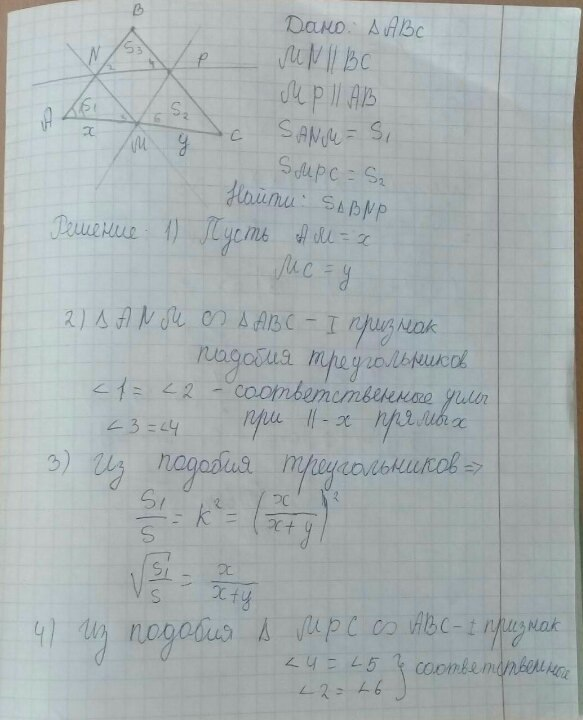 B
Дано: Δ ABC
N 2 S3 4 P
MN || BC
MP || AB
A S1 S2
x M 6 y C
S ANM = S1
S MPC = S2
Найти: S ΔBNP
Решение: 1) Пусть AM = x
MC = y
2) Δ ANM ∾ ΔABC - I признак
падобия треугольников
∠1 = ∠2 - соответственные углы
∠3 = ∠4 при || - х прямых
3) Из подобия треугольников =>
S1/S = K² = (x/(x+y))²
√(S1/S) = x/(x+y)
4) Из подобия Δ MPC ∾ ABC - I признак
∠4 = ∠5 } соответственное
∠2 = ∠6